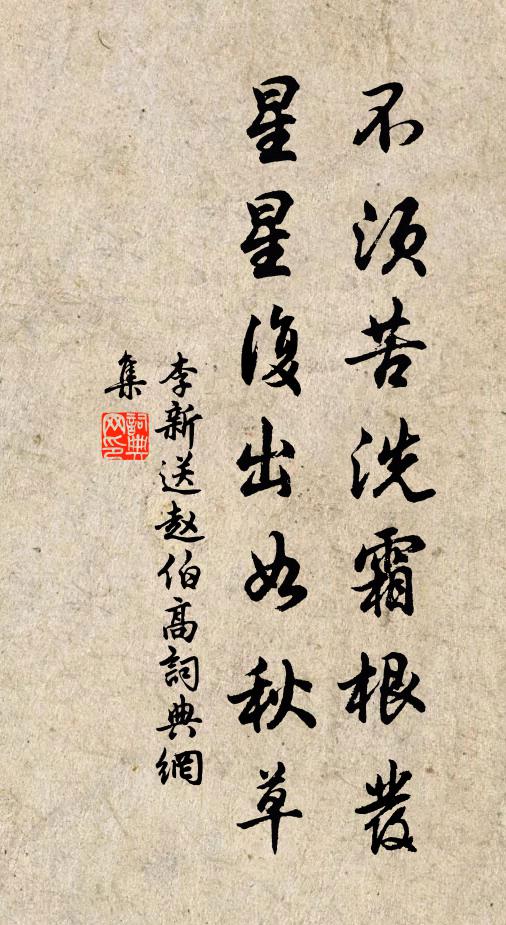 不须苦洗霜根发
星星復出如秋草
李新送赵伯高詞典網
集
詞典网印